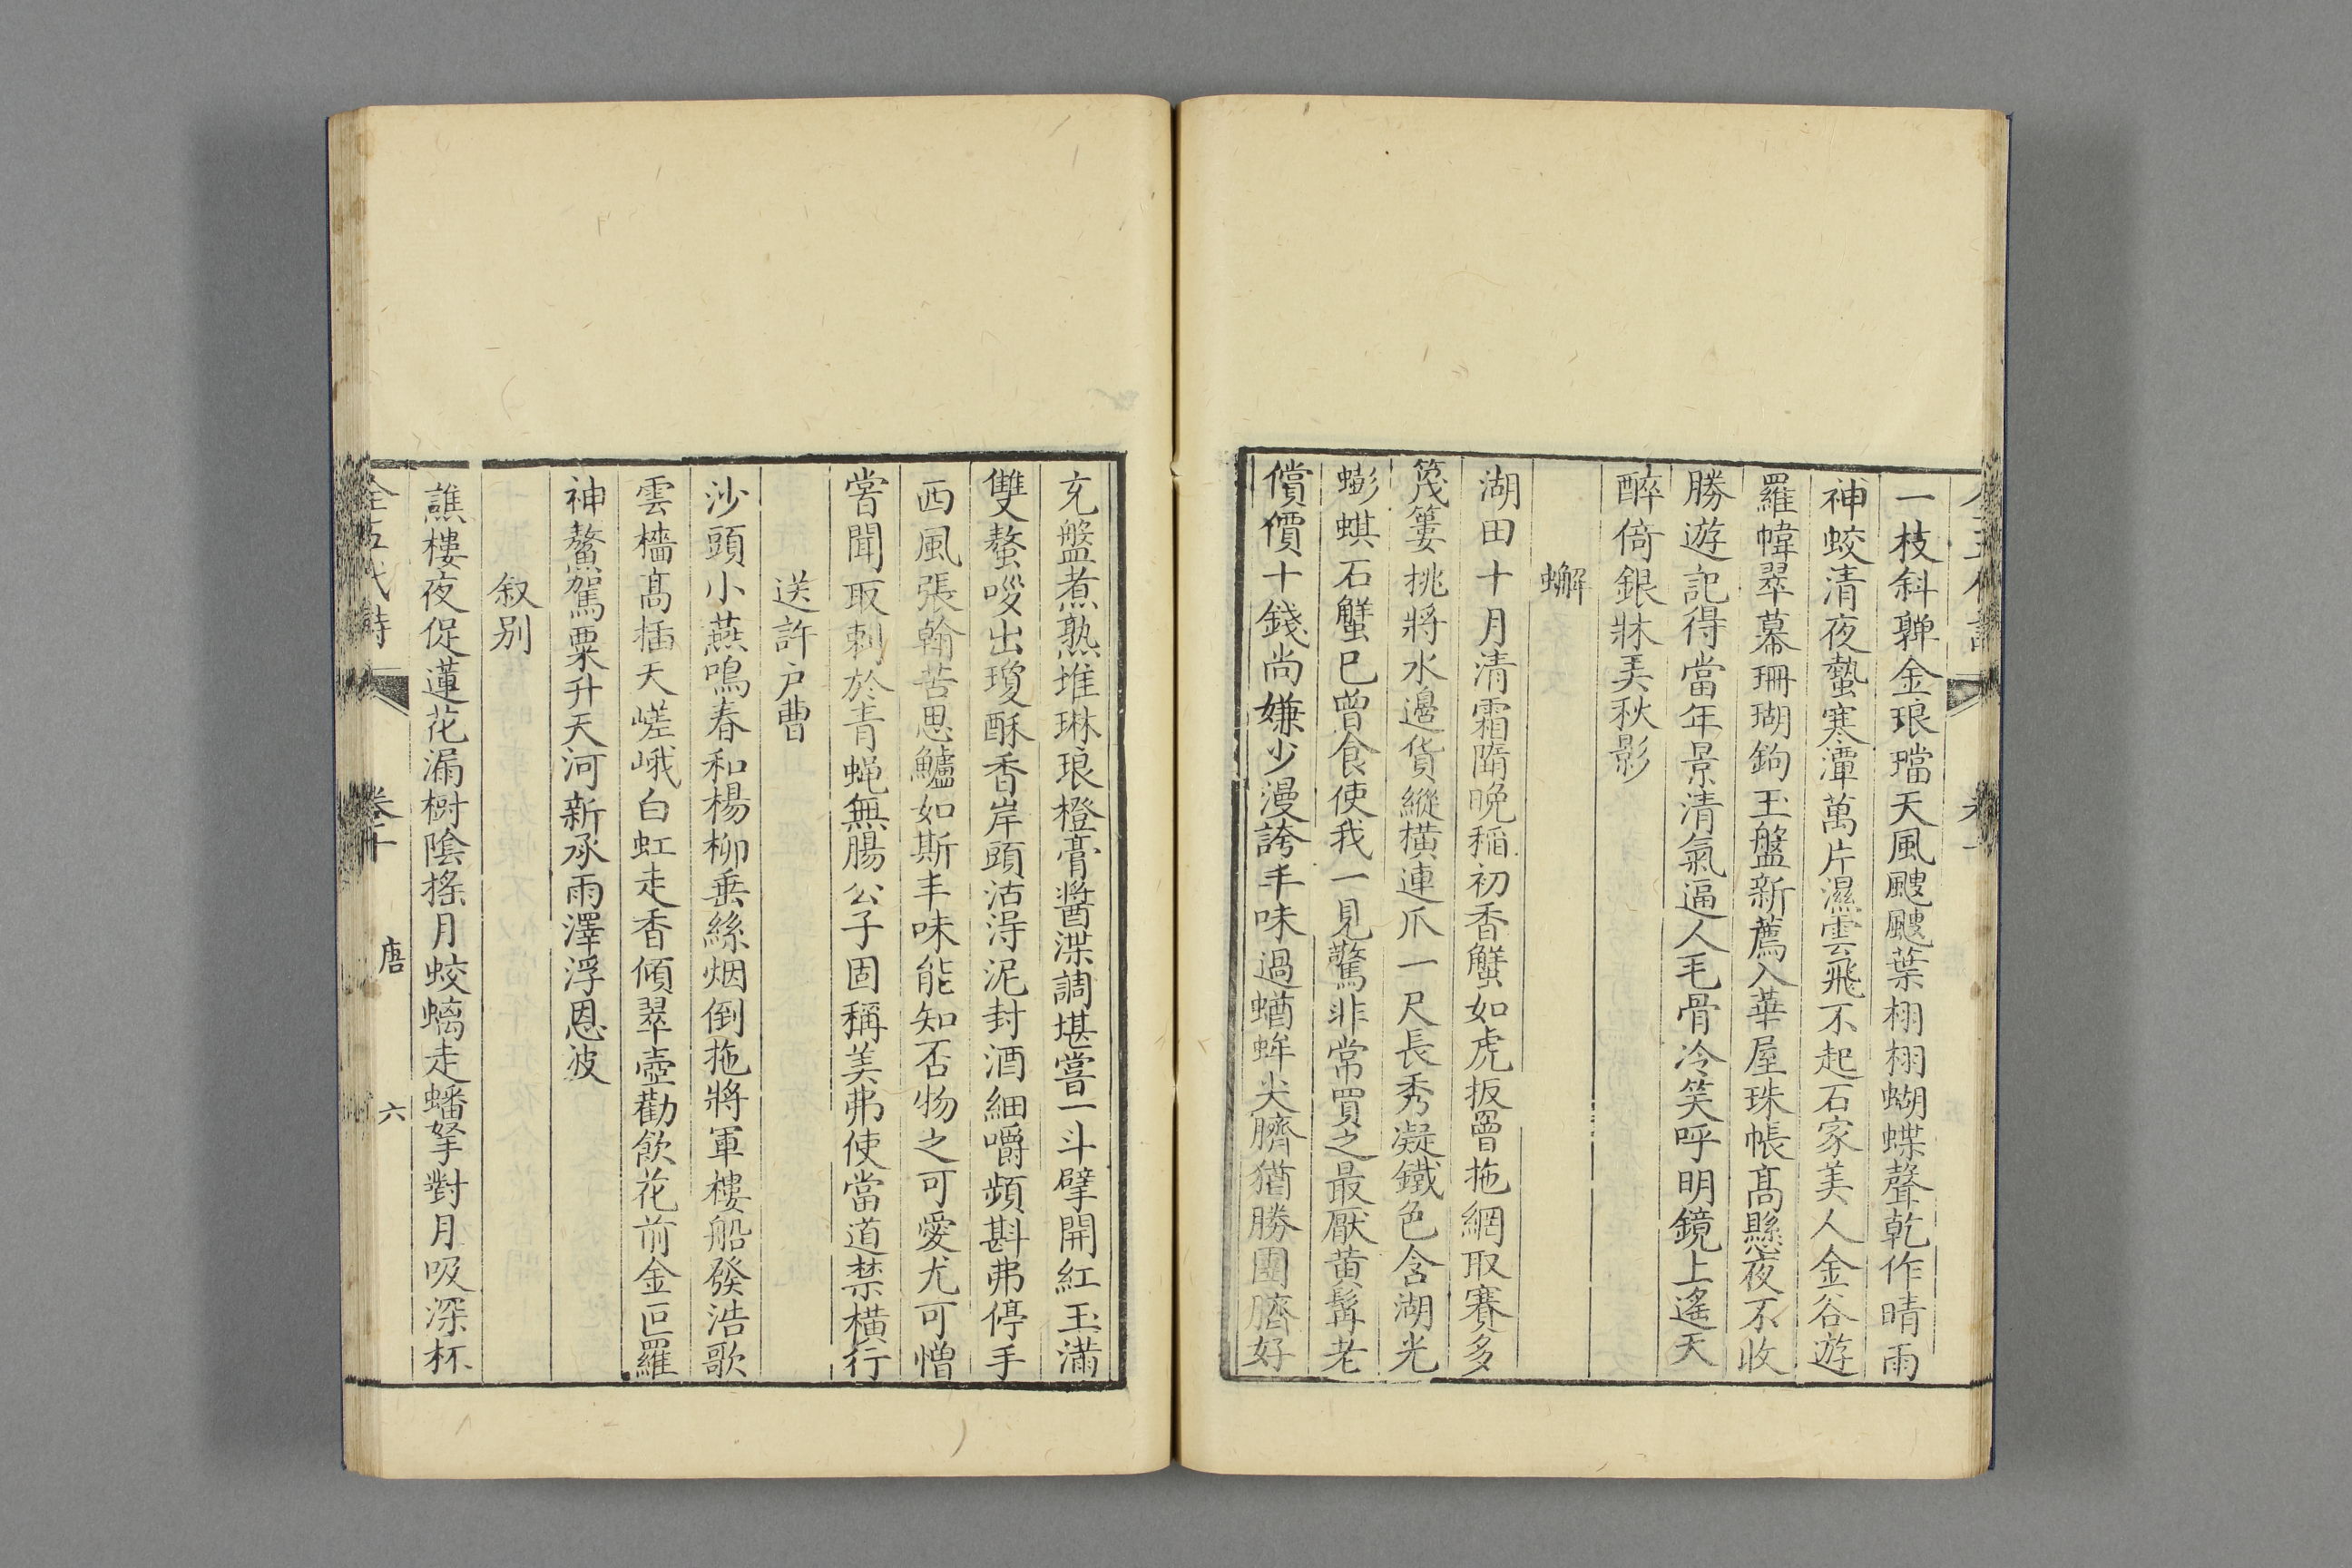 一枝斜亸金琅璫天風颼颼葉栩栩蝴蝶聲乾作晴雨
神蛟清夜蟄寒潭萬片濕雲飛不起石家美人金谷遊
羅幃翠幕珊瑚鉤玉盤新薦入華屋珠帳髙懸夜不收
勝遊記得當年景清氣逼人毛骨冷笑呼明鏡上遙天
醉倚銀牀美秋影
蠏
湖田十月清霜隋晚稻初香蟹如虎扳罾拖網取賽多
篾簍挑將水邊貨縱橫連爪一尺長秀凝鐵色含湖光
蟛蜞石蟹巳曾食使我一見驚非常買之最厭黄髯老
償價十錢尚嫌少漫誇丰味過蝤蛑尖臍猶勝團臍好
充盤煮熟堆琳琅橙膏醬渫調堪嘗一斗擘開紅玉滿
雙螯哾出瓊酥香岸頭沽淂泥封酒細嚼頻斟弗停手
西風張翰苦思鱸如斯丰味能知否物之可愛尤可憎
嘗聞取刺於青蝇無腸公子固稱美弗使當道禁橫行
送許户曹
沙頭小燕鳴春和楊柳垂絲烟倒拖將軍樓船發浩歌
雲檣髙插天嵯峨白虹走香傾翠壺勸飲花前金叵羅
神鰲駕粟升天河新承雨澤浮恩波
叙别
譙樓夜促蓮花漏樹陰搖月蛟螭走蟠拏對月吸深杯
全五代詩
卷十
唐
六